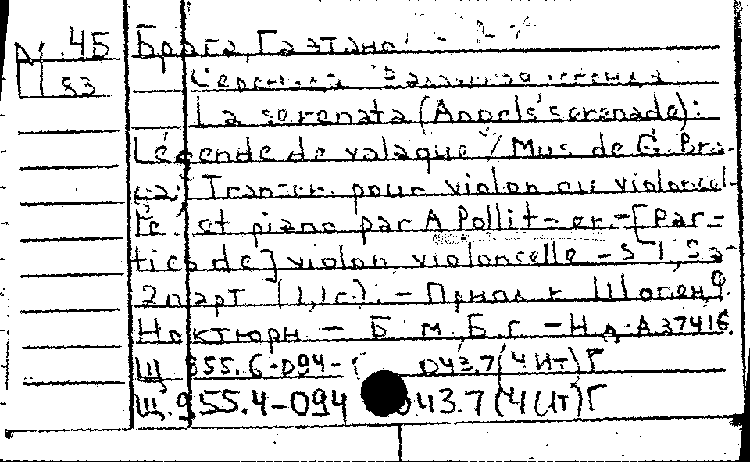 4Б Брага, Гаэтано
53 Серенада
La serenata (Angels's serenade):
Légende de valaque / Mus. de G. Bra-
ga; Transcr. pour violon ou violoncel-
le et piano par A. Pollit-er. - [Par-
ties de] violon, violoncelle - S- l, Sa-
2 парт (1,1 с). - Прил. к Шопен, Ф.
Ноктюрн. - Б. м. Б. г. - Н.д. А 37416.
Щ 955.6-094- 043.7(4Ит)Г
Щ.955.4-094 043.7(4Ит)Г